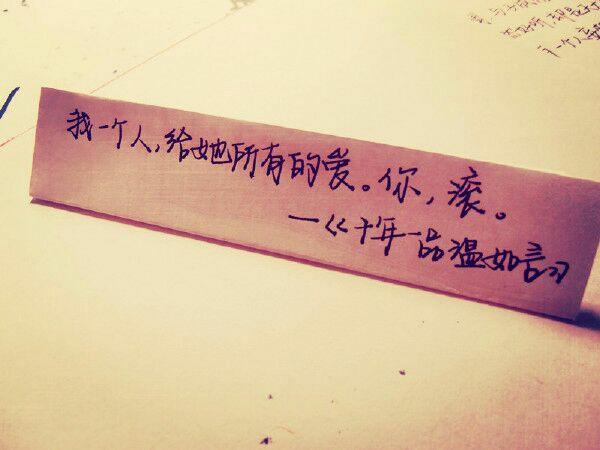 我一个人,给她所有的爱。你,滚。
—《十年一品温如言》